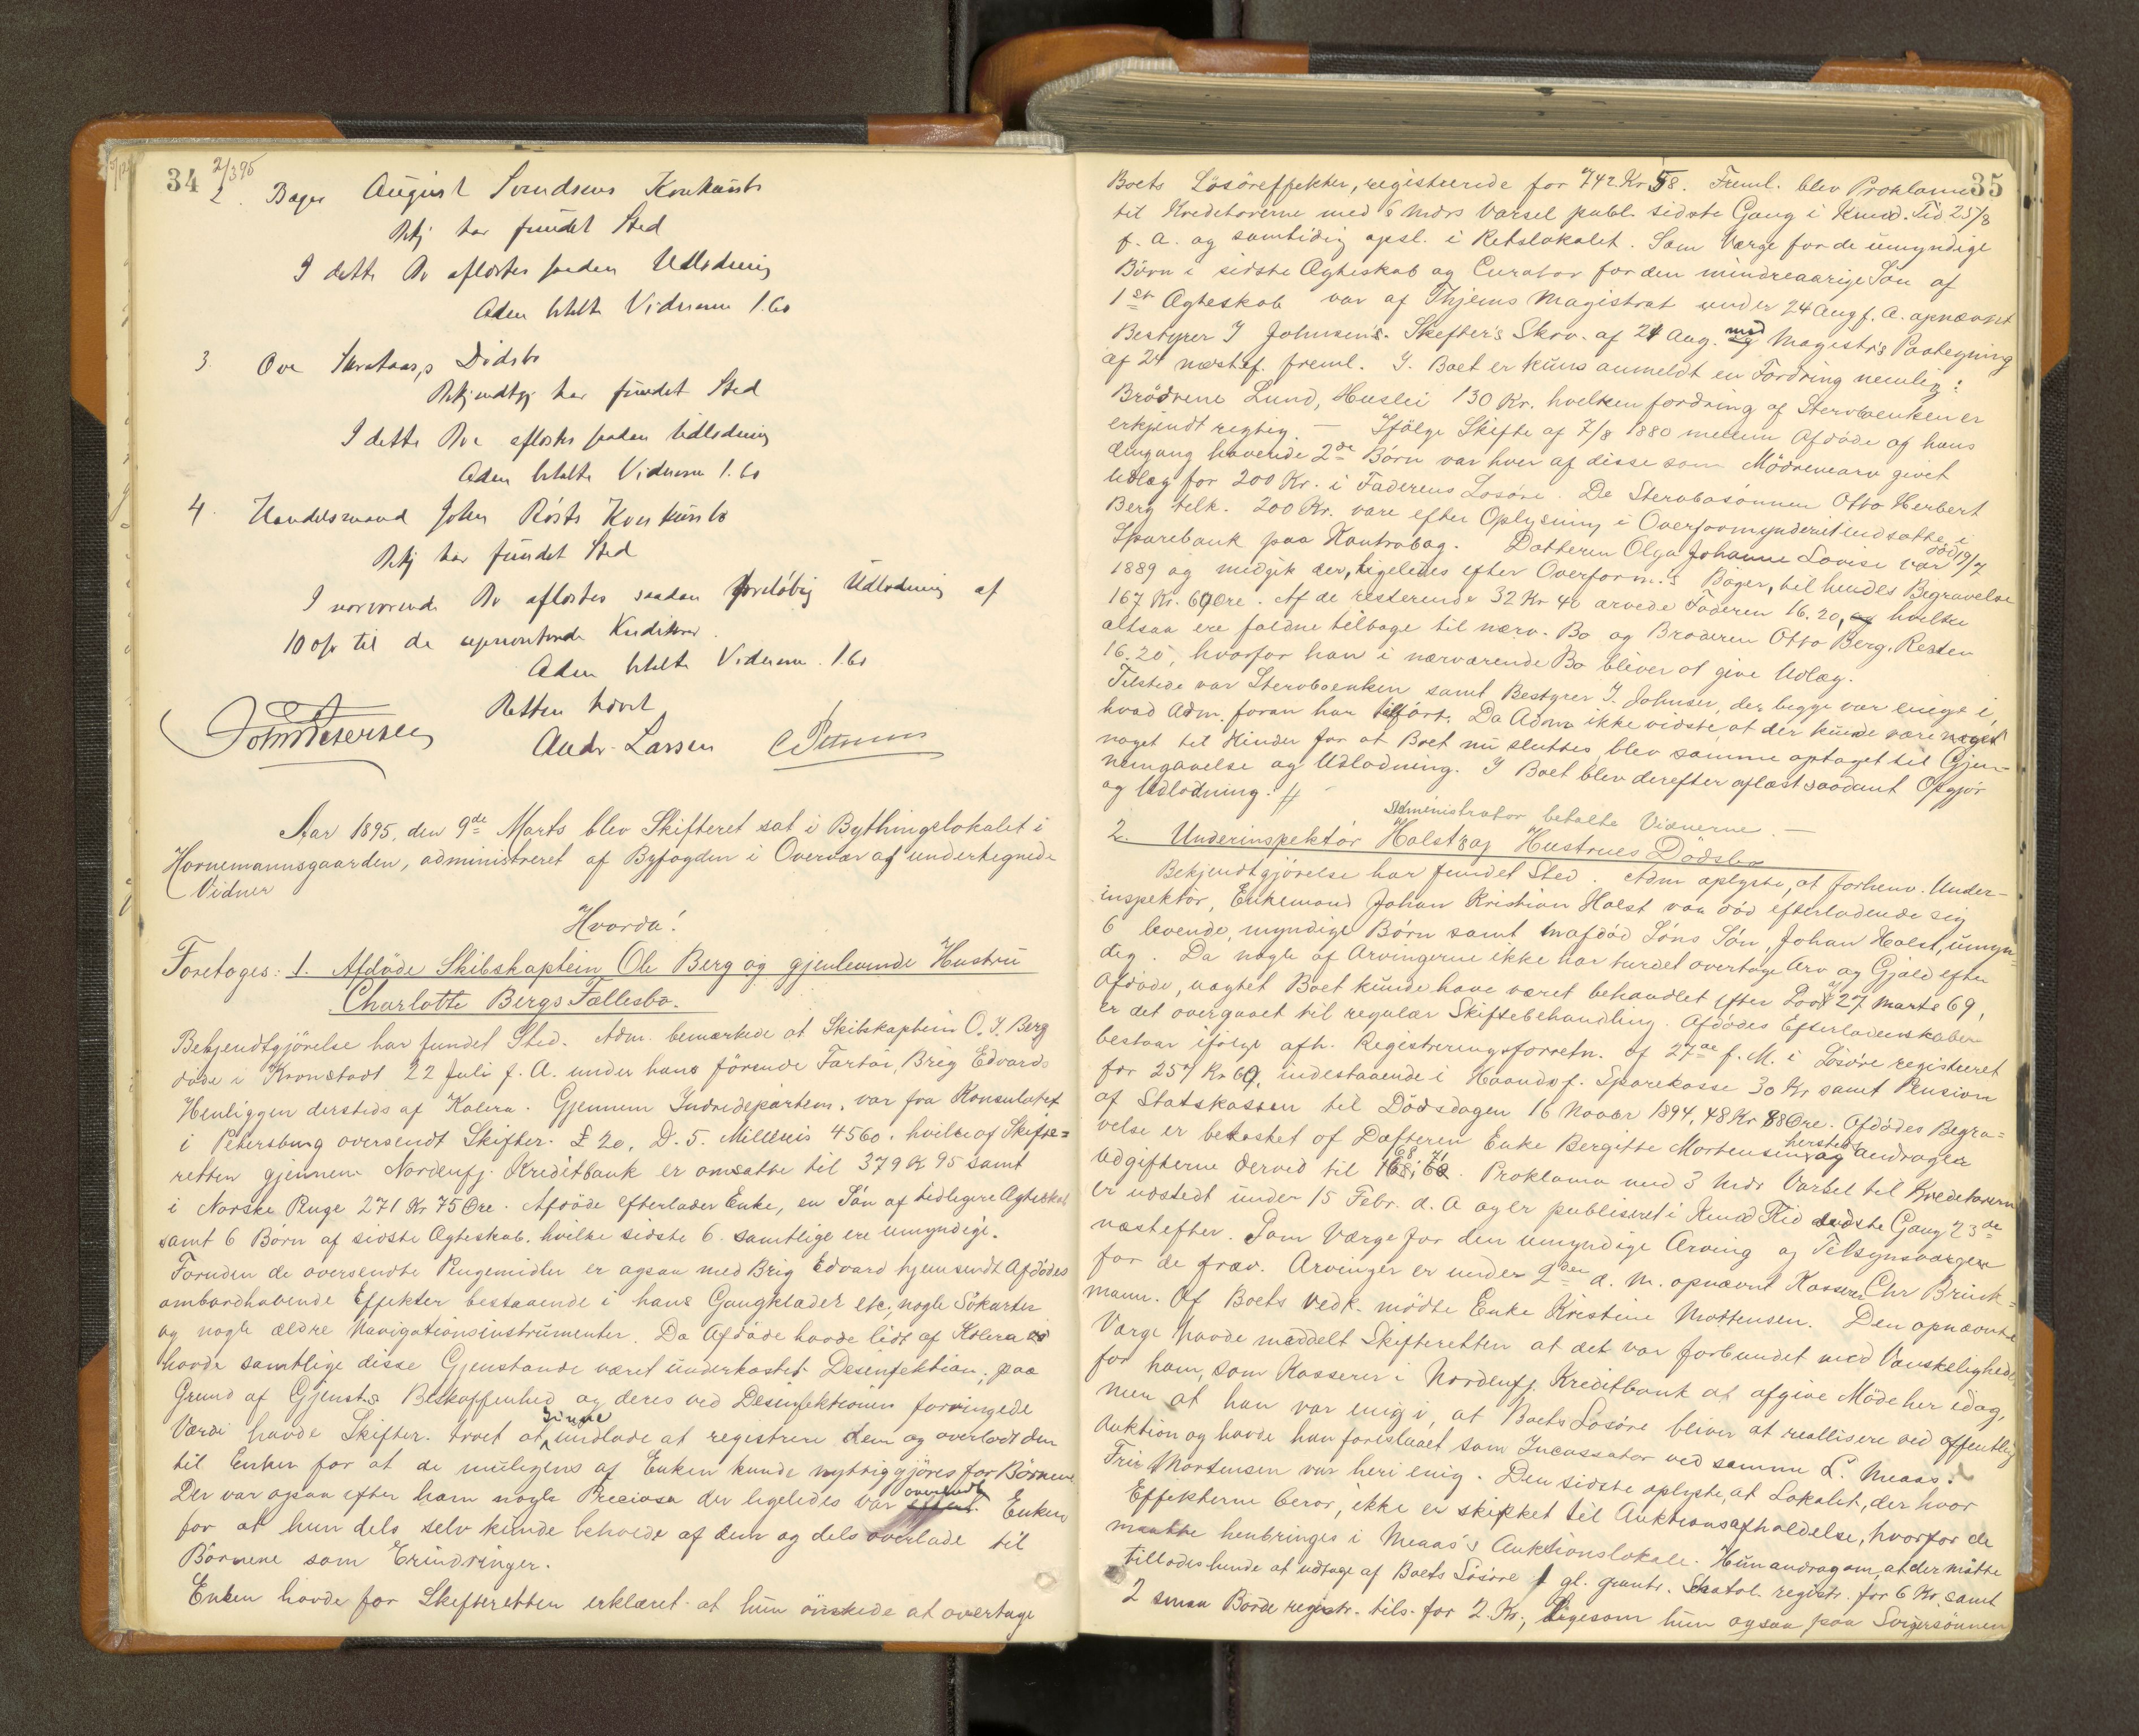 34 2/3 95
2. Bager August Svendsens Konkursbo
Bkj har fundet Sted
I dette Bo aflæstes saadan Udlodning
Adm betalte Vidnerne 1.60
3. Ove Dødsbo
Bkjendtgj har fundet Sted
I dette Bo aflæstes saadan Udlodning
Adm betalte Vidnerne 1.60
4. Handelsmand John Røsts Konkursbo
Bkj har fundet Sted
I nærværende Bo aflæstes saadan foreløbig Udlodning af
10 % til de Kreditorer.
Adm betalte Vidnerne 1.60
Retten hævet
Andr. Larsen
Aar 1895, den 9de Marts blev Skifteret sat i Bythingslokalet i
Hornemannsgaarden, administreret af Byfogden i Overvær af undertegnede
Vidner
Hvorda!
Foretoges: 1. Afdöde Skibskaptein Ole Berg og gjenlevende Hustru
Charlotte Bergs Fællesbo.
Bekjendtgjörelse har fundet Sted. Adm. bemærkede at Skibskaptein O. J. Berg
döde i Kronstadt 22 Juli f. A. under hans förende Fartöi, Brig Edvards
Henliggen dersteds af Kolera. Gjennem Indredepartem. var fra Konsulatet
i Petersburg oversendt Skifter. £ 20. D. 5. Millreis 4560. hvilke af Skifte=
retten gjennem Nordenfj. Kreditbank er omsatte til 379 K 95 samt
i Norske Penge 271 Kr 75 Öre. Afdöde efterlader Enke, en Sön af tidligere Ægteskab
samt 6 Börn af sidste Ægteskab, hvilke sidste 6 samtlige ere umyndige.
Foruden de oversendte Pengemidler er ogsaa med Brig Edvard hjemsendt Afdödes
ombordhavende Effekter bestaaende i hans Gangklæder etc, nogle Sökarter
og nogle ældre Navigationsinstrumenter. Da Afdöde havde lidt af Kolera
havde samtlige disse Gjenstande været underkastet Desinfektion; paa
Grund af Gjensts Beskaffenhed og deres ved Desinfektionen forringede
Værdi havde Skifter. troet at kunne undlade at registrere dem og overlodt dem
til Enken for at de muligens af Enken kunde nyttiggjöres for Börnene
Der var ogsaa efter ham nogle Preciosa der ligeledes var overladt Enken
for at hun dels selv kunde beholde af dem og dels overlade til
Börnene som Erindringer.
Enken havde for Skifteretten erklæret at hun önskede at overtage
35
Boets Lösöreffekter, registrerede for 742 Kr 58. Freml. blev Proklama
til Kreditorerne med 6 Mdrs Varsel publ. sidste Gang i Kund. Tid 25/8
f. A. og samtidig opsl. i Retslokalet. Som Værge for de umyndige
Börn i sidste Ægteskab og Curator for den mindreaarige Sön af
1ste Ægteskab var af Thjems Magistrat under 24 Aug f. A. opnævnt
Bestyrer J Johnsen. Skifter's Skrv. af 21 Aug. med Magistr's Paategning
af 24 næstef. freml. I Boet er kuns anmeldt en Fordring nemlig:
Brödrene Lund, Huslei 130 Kr. hvilken fordring af Stervboenken er
erkjendt rigtig. — Ifölge Skifte af 7/8 1880 mellem Afdöde og hans
dengang havende 2de Börn var hver af disse som Mödrenearv givet
Udlæg for 200 Kr. i Faderens Lösöre. De Stervbosönnen Otto Herbert
Berg tilk. 200 Kr. vare efter Oplysning i Overformynderiet indsatte i
Sparebank paa Kontrabog. Datteren Olga Johanne Lovise var död 19/7
1889 og medgik der, ligeledes efter Overform.s Böger, til hendes Begravelse
167 Kr. 60 Öre. Af de resterende 32 Kr 40 arvede Faderen 16.20, hvilke
altsaa ere faldne tilbage til nærv. Bo og Broderen Otto Berg. Resten
16.20, hvorfor han i nærværende Bo bliver at give Udlæg.
Tilstede var Stervboenken samt Bestyrer J. Johnsen, der begge var enige i,
hvad Adm. foran har tilfört. Da Adm ikke vidste, at der kunde være noget
noget til Hinder for at Boet nu sluttes, blev samme optaget til Gjen-
nemgaaelse og Udlodning. I Boet blev derefter oplæst saadant Opgjör
og Udlodning: #
Administrator betalte Vidnerne. —
2. Underinspektör Holst og Hustrues Dödsbo
Bekjendtgjörelse har fundet Sted. Adm oplyste, at forhenv. Under-
inspektör, Enkemand Johan Kristian Holst var död efterladende sig
6 levende, myndige Börn samt en afdöd Söns Sön, Johan Holst, umyn=
dig. Da nogle af Arvingerne ikke har turdet overtage Arv og Gjæld efter
Afdöde, uagtet Boet kunde have været behandlet efter Lov af 27 Marts 69,
er det overgaaet til regulær Skiftebehandling. Afdödes Efterladenskaber
bestaar ifölge afh. Registreringsforretn. af 27de f. M. i Lösöre registreret
for 257 Kr 60, indestaaende i Haandv.f. Sparekasse 30 Kr samt Pension
af Statskassen til Dödsdagen 16 Novbr 1894, 48 Kr 88 Öre. Afdödes Begra=
velse er bekostet af Datteren Enke Bergitte Mortensen hersteds og andrager
Udgifterne derved til 168.71. Proklama med 3 Mdr Varsel til Kreditorerne
er udstedt under 15 Febr. d. A og er publiseret i Kund Tid sidste Gang 23de
næstefter. Som Værge for den umyndige Arving og Tilsynsværger
for de fræv. Arvinger er under 2den d. M. opnævnt Kasserer Chr Brück=
mann. Af Boets Vedk. mödte Enke Kristine Mortensen. Den opnævnte
Værge havde meddelt Skifteretten at det var forbundet med Vanskelighed
for ham, som Kasserer i Nordenfj. Kreditbank at afgive Möde her idag,
men at han var enig i, at Boets Lösöre bliver at reallisere ved offentlig
Auktion og havde han foreslaaet som Incassator ved samme L. Meaas.
Fru Mortensen var heri enig. Den sidste oplyste, at Lokalet, der hvor
Effekterne beror, ikke er skikket til Auktionsafholdelse, hvorfor de
maatte henbringes i Meaas's Auktionslokale. Hun androg om, at der måtte
tillades hende at udtage af Boets Lösöre 1 gl. Schatol. registr. for 6 Kr, samt
2 smaa Borde registr. tils. for 2 Kr., ligesom hun ogsaa paa Svigersönnen